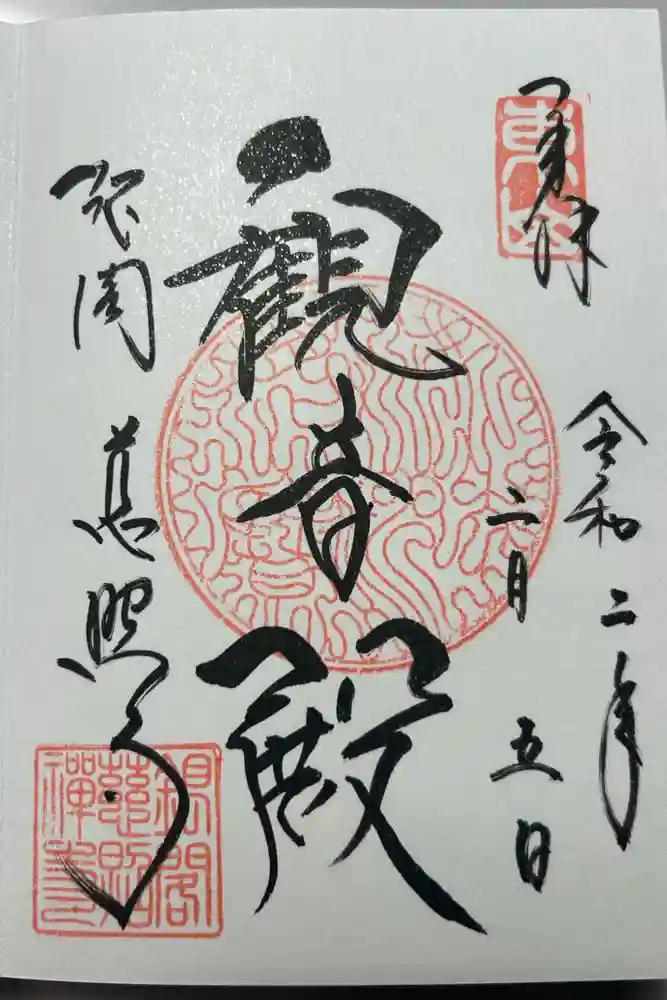 奉拝
東山
令和二年
二月五日
觀音殿
銀閣 慈照寺
銀閣
慈照
禪寺